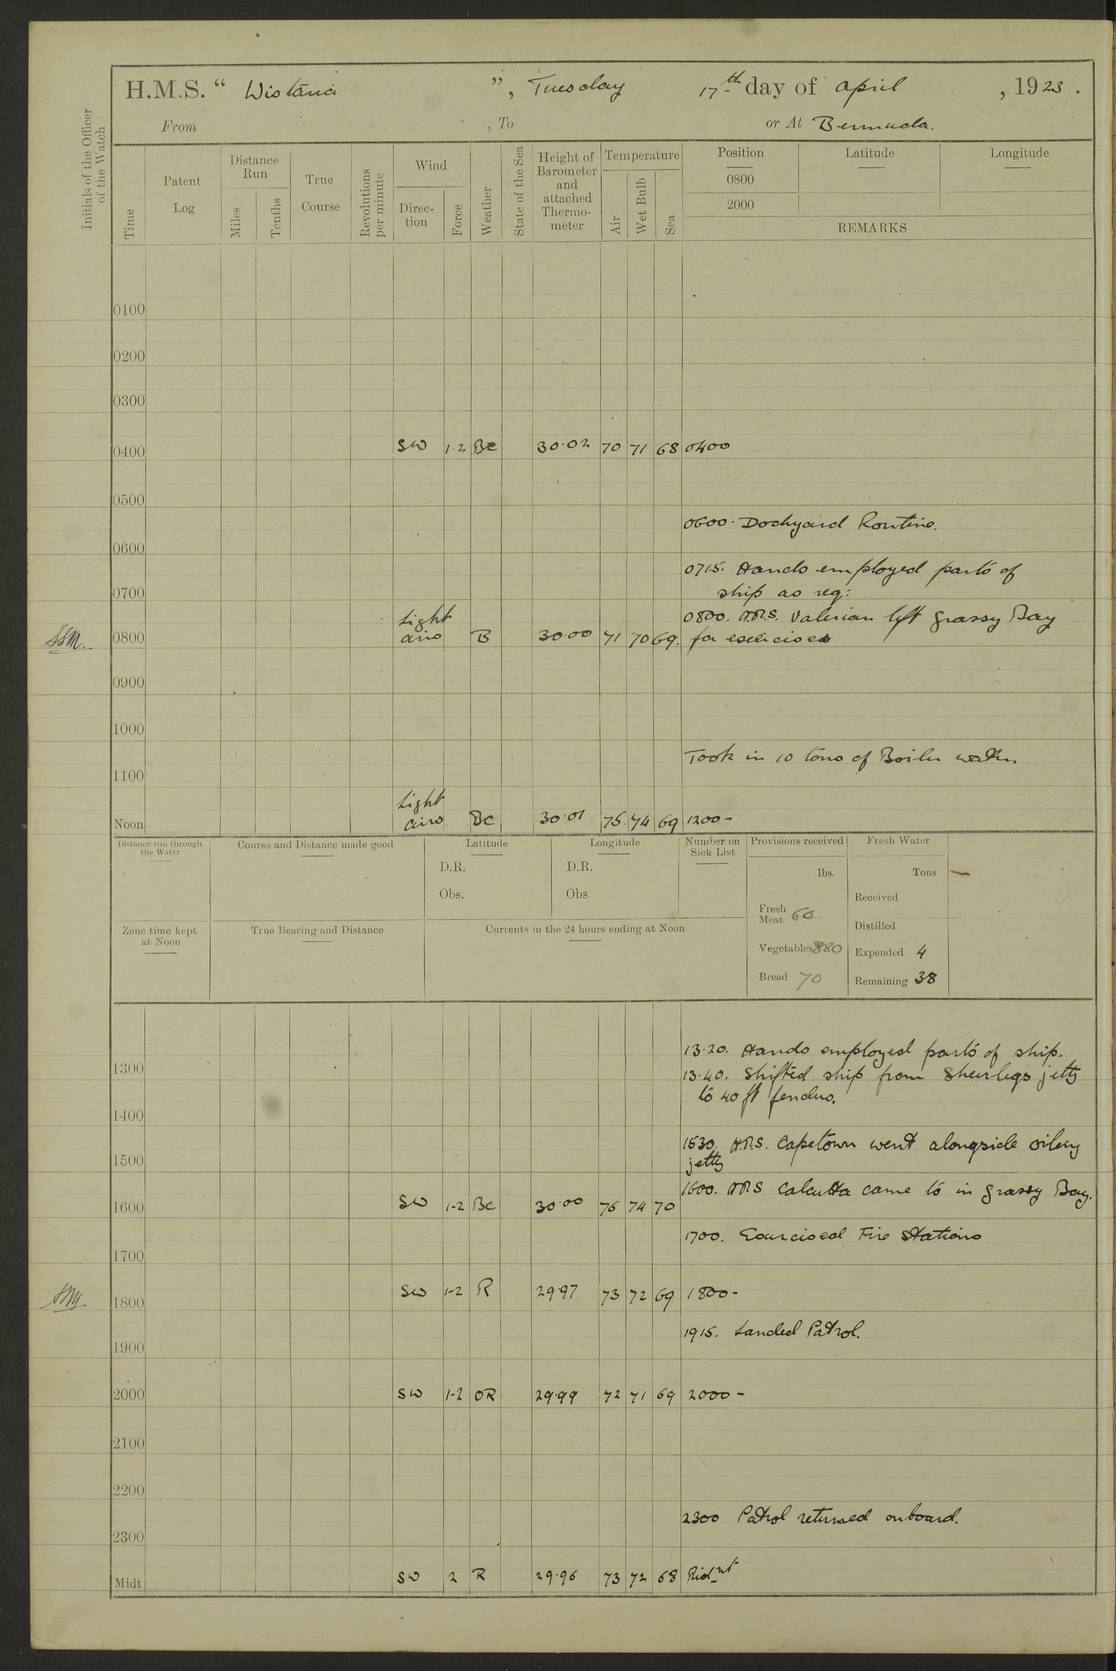 H.M.S. " Wistaria ", Tuesday 17th day of April, 1923.
From , To or At Bermuda.
Initials of the Officer of the Watch
Time
Patent Log
Distance Run
Miles
Tenths
True Course
Revolutions per minute
Wind
Direc-tion
Force
Weather
State of the Sea
Height of Barometer and attached Thermo-meter
Temperature
Air
Wet Bulb
Sea
Position Latitude Longitude
0800
2000
REMARKS
0100
0200
0300
0400 SW 1-2 Bc 30.02 70 71 68 0400
0500
0600. Dockyard Routine.
0600
0715. Hands employed parts of
0700 ship as req:
Light 0800. H.M.S. Valerian left Grassy Bay
0800 airs B 30.00 71 70 69. for exercises
0900
1000
Took in 10 tons of Boiler water.
1100
Light
Noon airs. Bc 30.01 75 74 69 1200-
Distance run through the Water
Course and Distance made good
Latitude
D.R.
Obs.
Longitude
D.R.
Obs.
Number on Sick List
Provisions received
lbs.
Fresh Meat 60
Vegetables 880
Bread 70
Fresh Water
Tons
Received
Distilled
Expended 4
Remaining 38
Zone time kept at Noon
True Bearing and Distance
Currents in the 24 hours ending at Noon
13.20. Hands employed parts of ship.
1300
13.40. Shifted ship from Sheerlegs jetty
to 40 ft fenders.
1400
1530. H.M.S. Capetown went alongside oiling
1500 jetty
1600. HMS Calcutta came to in Grassy Bay.
1600 SW 1-2 Bc 30.00 76 74 70
1700. Exercised Fire Stations
1700
1800 SW 1-2 R 29.97 73 72 69 1800-
1915. Landed Patrol.
1900
2000 SW 1-2 OR 29.99 72 71 69 2000-
2100
2200
2300 Patrol returned onboard.
2300
Midt SW 2 R 29.96 73 72 68 Midnt